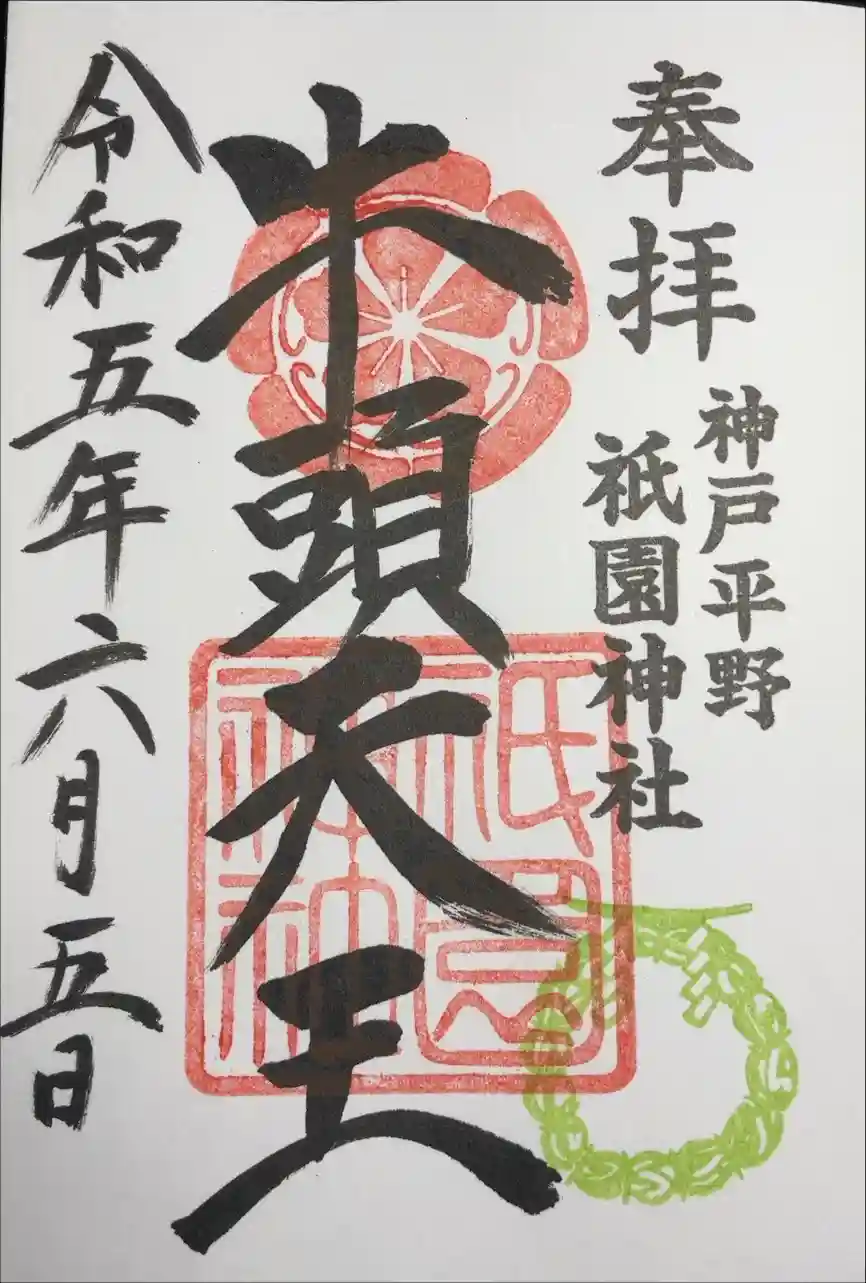 奉拝
神戸平野
祇園神社
牛頭天王
令和五年六月五日
祇園
神社